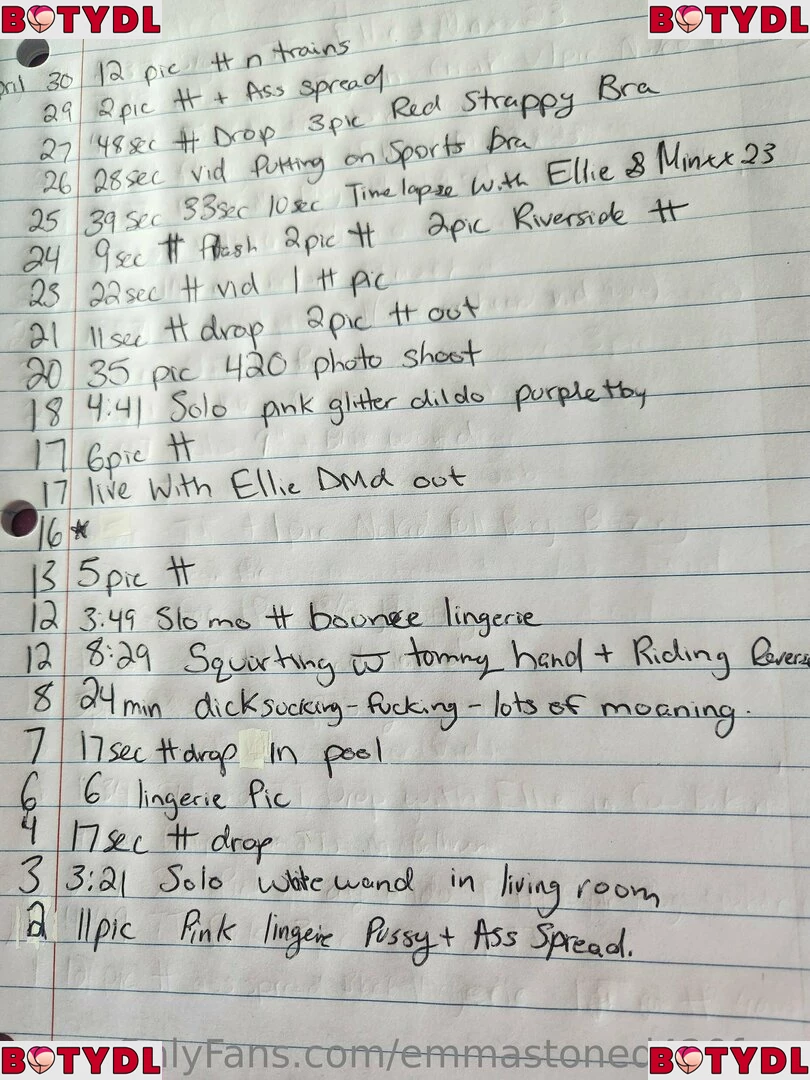 BOTYDL BOTYDL
30 12 pic tt n trains
29 2pic tt + Ass spread
27 48sec tt Drop 3pic Red Strappy Bra
26 28sec vid Putting on Sports bra
25 39 sec 33sec 10sec Timelapse With Ellie & Minxx 23
24 9sec tt flash 2pic tt 2pic Riverside tt
23 22sec tt vid 1 tt pic
21 11sec tt drop 2pic tt out
20 35 pic 420 photo shoot
18 4:41 Solo pink glitter dildo purple toy
17 6pic tt
17 live With Ellie DMd out
16 *
13 5pic tt
12 3:49 Slo mo tt bounce lingerie
12 8:29 Squirting w tommy hand + Riding
8 24min dicksucking - fucking - lots of moaning.
7 17sec tt drop in pool
6 6 lingerie Pic
4 17sec tt drop
3 3:21 Solo white wand in living room
2 11pic Pink lingerie Pussy + Ass Spread.
BOTYDL BOTYDL